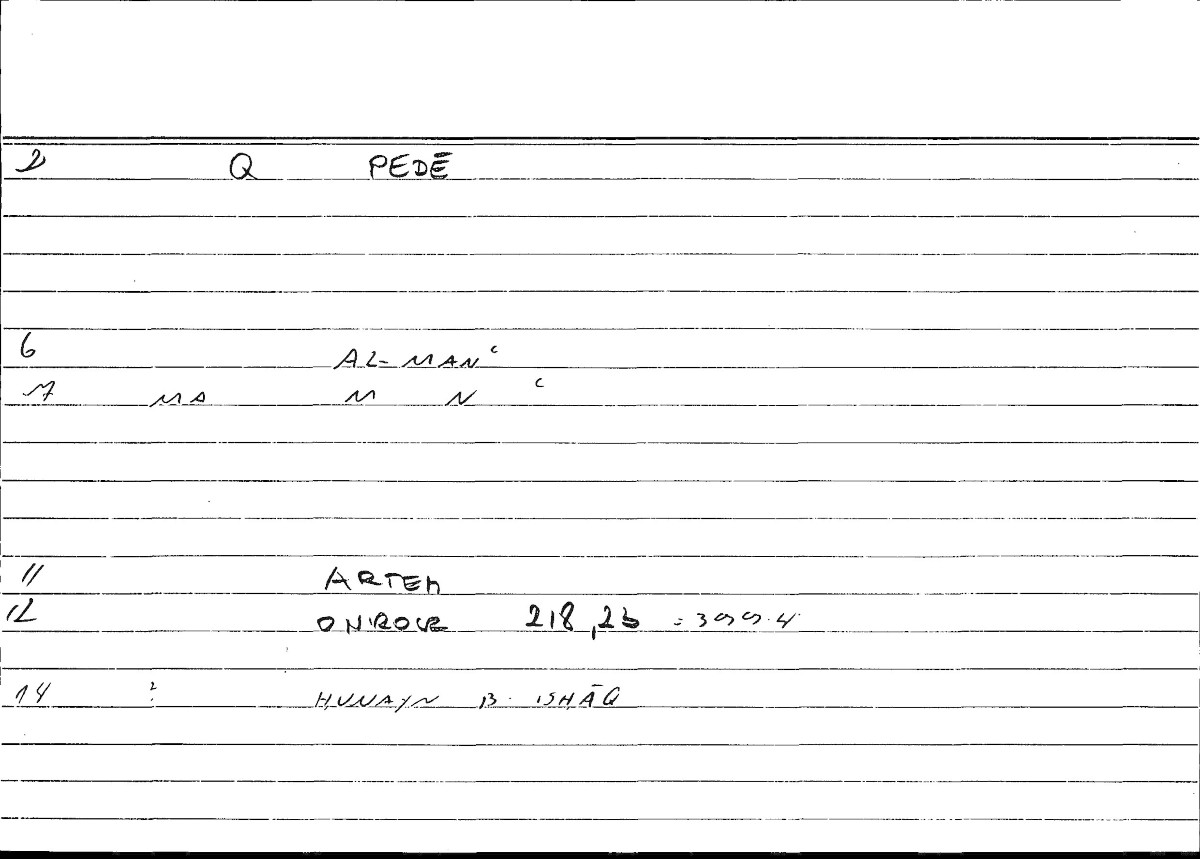 2 Q PEDĒ
6 AL-MANʿ
7 MA M N ʿ
11 ARTEM
12 ONIROCR 218,25 = 399.4
14 ? HUNAYN B. ISHĀQ